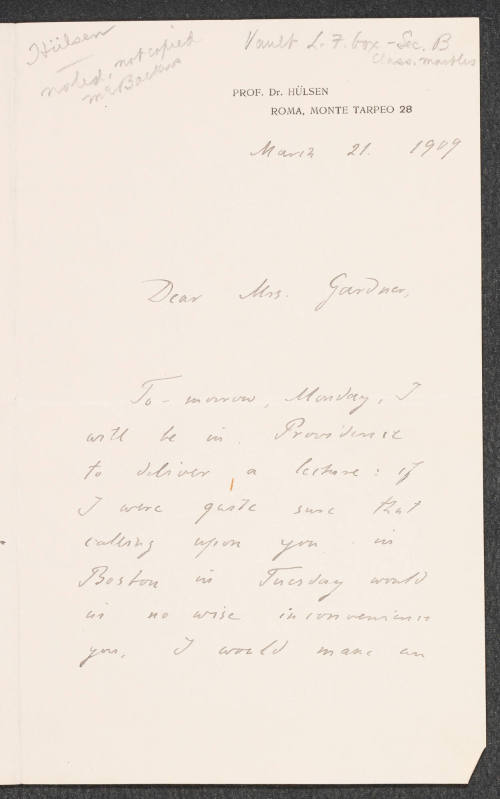 Hülsen
noted, not copied
Mr Backus
Vault L. F. box - Sec. B
Class. marbles
PROF. Dr. HÜLSEN
ROMA, MONTE TARPEO 28
March 21. 1909
Dear Mrs. Gardner,
To-morrow, Monday, I
will be in Providence
to deliver a lecture: if
I were quite sure that
calling upon you in
Boston in Tuesday would
in no wise inconvenience
you, I would make an